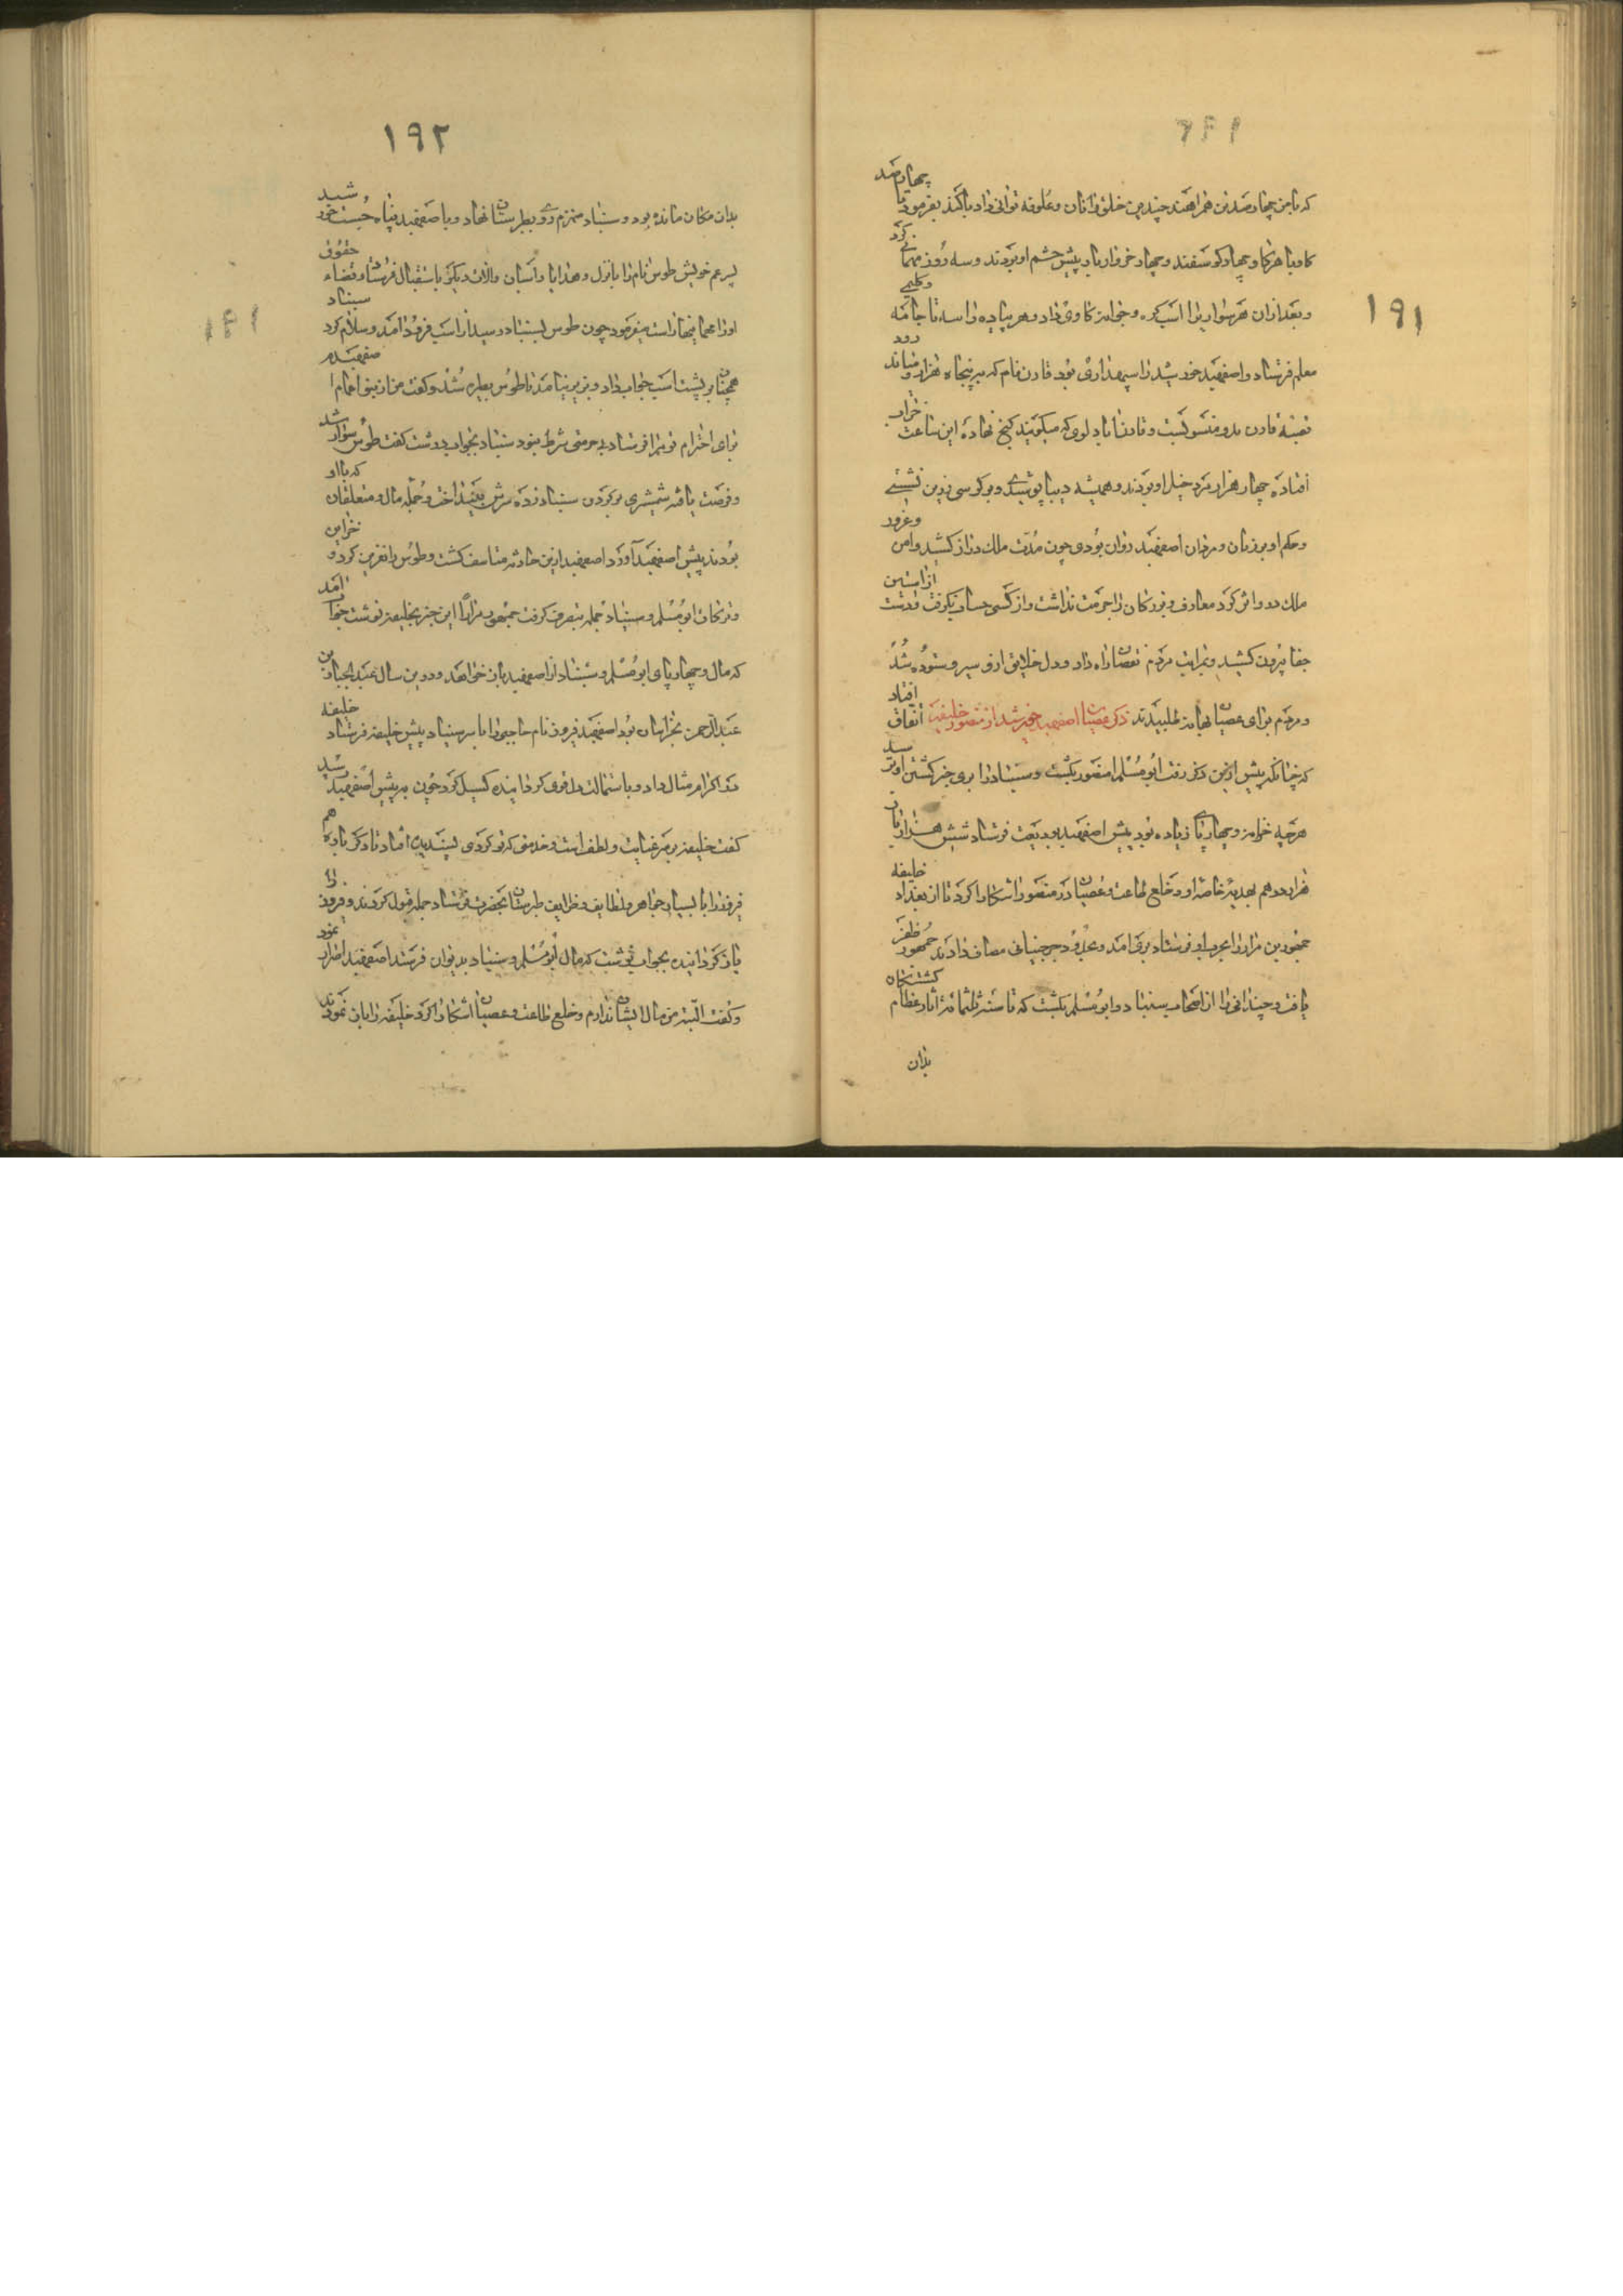 ۱۹۱
که با من چهار صد تن همراهند چندین خلق را نان و علوفه توانی داد باکند بفرمود تا چهار صد
کاو با هر کاو چهار کوسفند و چهار خروار بار پیش چشم او بردند و سه روز مهمانی کرد
و بعد ازان هر سوار یرا اسب کره و جوامرد کاوی داد و هر پیاده را سه تا جامه و کلیمی
معلم فرستاد و اصفهبد خورشید را سپهداری بود قارن نام که پنجاه هزار و میاند رود
قصبه قارن بدو منسو کشت و قارن اباد لوری که میکویند کنج نهاده این ساعت خراب
افتاده چهار هزار مرد خیل او بودند و همیشه دیبا پوشیدی و بر کرسی زرین نشستی
و حکم او بر زنان و مردان اصفهبد روان بودی چون مدت ملک دراز کشید و امن و غرور
ملک درو اثر کرد معارف و بزرکان را حرمت نداشت و از کسی حساب نکرفت و دست از استین
جفا بیرون کشید و بمراتب مردم نقصان راه داد و دل خلایق ازو سیر و ستوده شد
و مردم برای عصیان بهانه طلبیدند ذکر عصیان اصفهبد خورشید از منصور خلیفه اتفاق افتاد
که چنانکه پیش ازین ذکر رفت ابومسلم را منصور بکشت و سنباد را بری خبر کشتن او رسید
هر چه خزاین و چهارپای زیاده بود پیش اصفهبد بودیعت فرستاد شش هزار بار
هزار درهم بهدیه خاصه او و خلع طاعت و عصیان در منصور اشکارا کرد تا از بغداد خلیفه
جمهور بن مرار را بحرب او فرستاد بری امد و بحدود جرجنبانی مصاف دادند جمهور ظفر
یافت و چندانی را از اصحاب سنباد و ابومسلم بکشت که تا سنه ثلثمائه اثار عظام کشتکان
بدان
۱۹۲
بدان مکان مانده بود و سنباد منهزم روی بطبرستان نهاد و باصفهبد پناه جست خورشید
پسر عم خویش طوس نام را با نزل و هدایا و اسبان و الات دیکر باستقبال فرستاد و قضاء حقوق
او را اعمام پنهان است میفرمود چون طوس بسنباد رسید از اسب فرود امد و سلام کرد سنباد
همچنان بر پشت اسب جواب داد و بزیر نیامد طوس بطیره شد و کفت من از بنو اعمام اصفهبدم
برای احترام تو مرا فرستاد بی حرمتی شرط نبود سنباد بجواب درشت کفت طوس سوار شد
و فرصت یافته شمشیری بر کردن سنباد زده سرش بینداخت و جمله مال و متعلقان که با او
بودند پیش اصفهبد آورد اصفهبد ازین حادثه متاسف کشت و طوس را نفرین کرد و خزاین
و ترکات ابومسلم و سنباد جمله بتصرف کرفت جمهور مرار را این خبر بخلیفه نوشت جواب امد
که مال و چهارپای ابومسلم و سنباد از اصفهبد باز خواهد و درین سال عبدالجبار بن
عبدالرحمن بخراسان بود اصفهبد فیروز نام حاجبی را با سر سنباد پیش خلیفه فرستاد خلیفه
در اکرام مثال داد و باستمالت دل قوی کردانیده کسیل کرد چون به پیش اصفهبد رسید
کفت خلیفه بر سر عنایت و لطف است و خدمتی که تو کردی پسندیده افتاد تا دکر باره هم
فیروز را با بسیار جواهر و لطایف و ظرایف طبرستان بحضرت فرستاد جمله قبول کردند و فیروز را
باز کردانیده بجواب نوشت که مال ابومسلم و سنباد بدیوان فرستد اصفهبد اصرار نمود
و کفت البته من مال ایشان ندارم و خلع طاعت و عصیان اشکارا کرد خلیفه را بازنمودند
۱۹۱